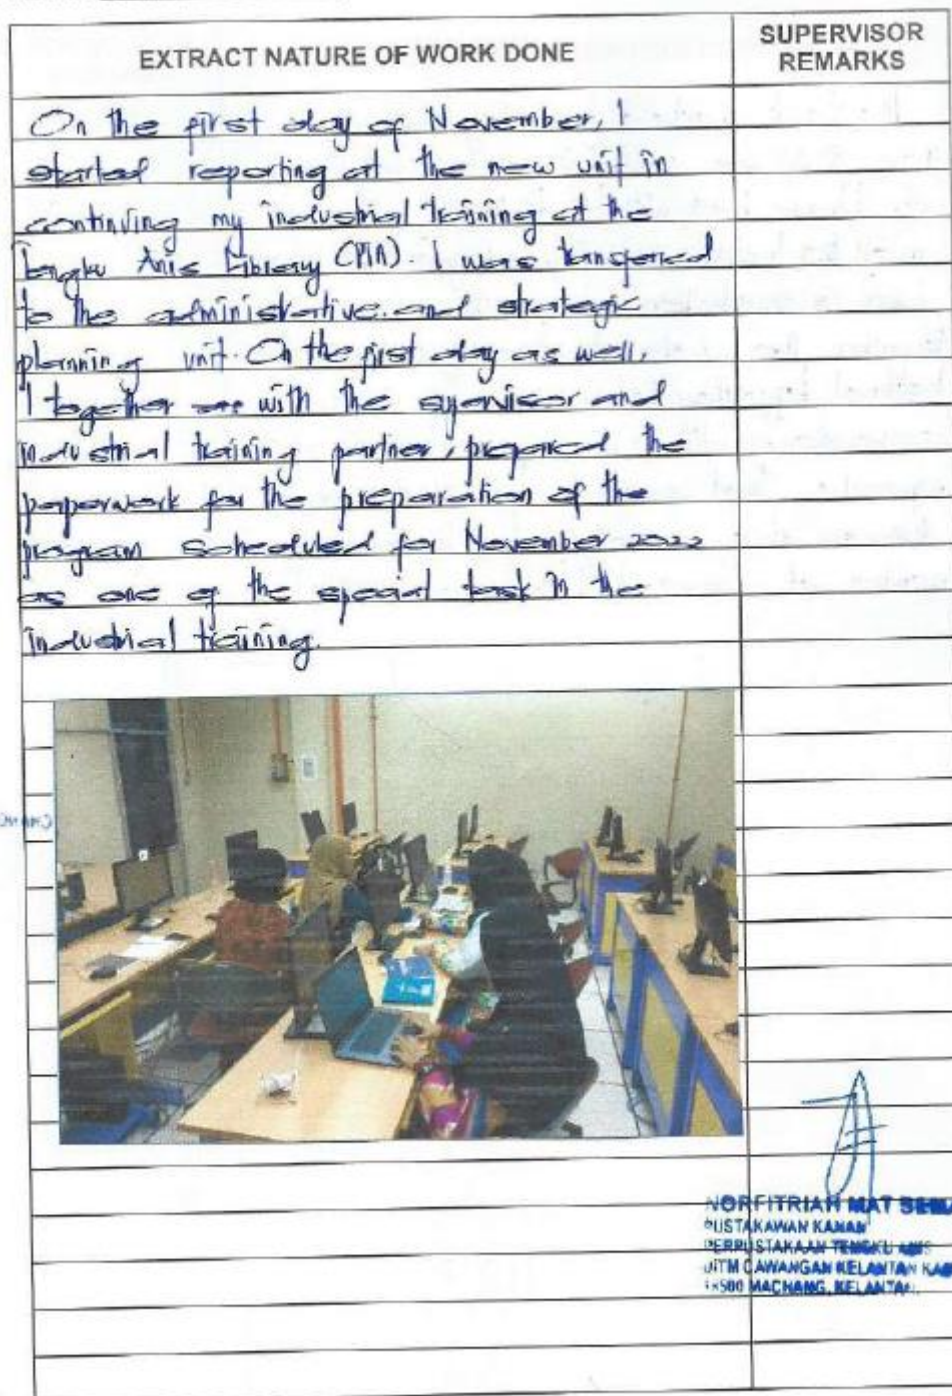 EXTRACT NATURE OF WORK DONE
SUPERVISOR
REMARKS
On the first day of November, I
started reporting at the new unit in
continuing my industrial training at the
Tengku Anis Library (PTA). I was transfered
to the administrative and strategic
planning unit. On the first day as well,
I together with the supervisor and
industrial training partner, prepared the
paperwork for the preparation of the
program scheduled for November 2022
as one of the special task in the
industrial training.
NORFITRIAH MAT
PUSTAKAWAN KANAN
PERPUSTAKAAN TENGKU ANIS
UITM CAWANGAN KELANTAN
18500 MACHANG, KELANTAN.